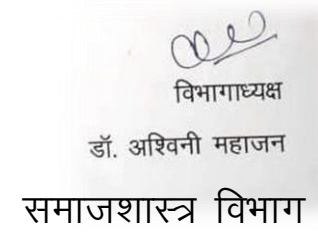 विभागाध्यक्ष
डॉ. अश्विनी महाजन
समाजशास्त्र विभाग